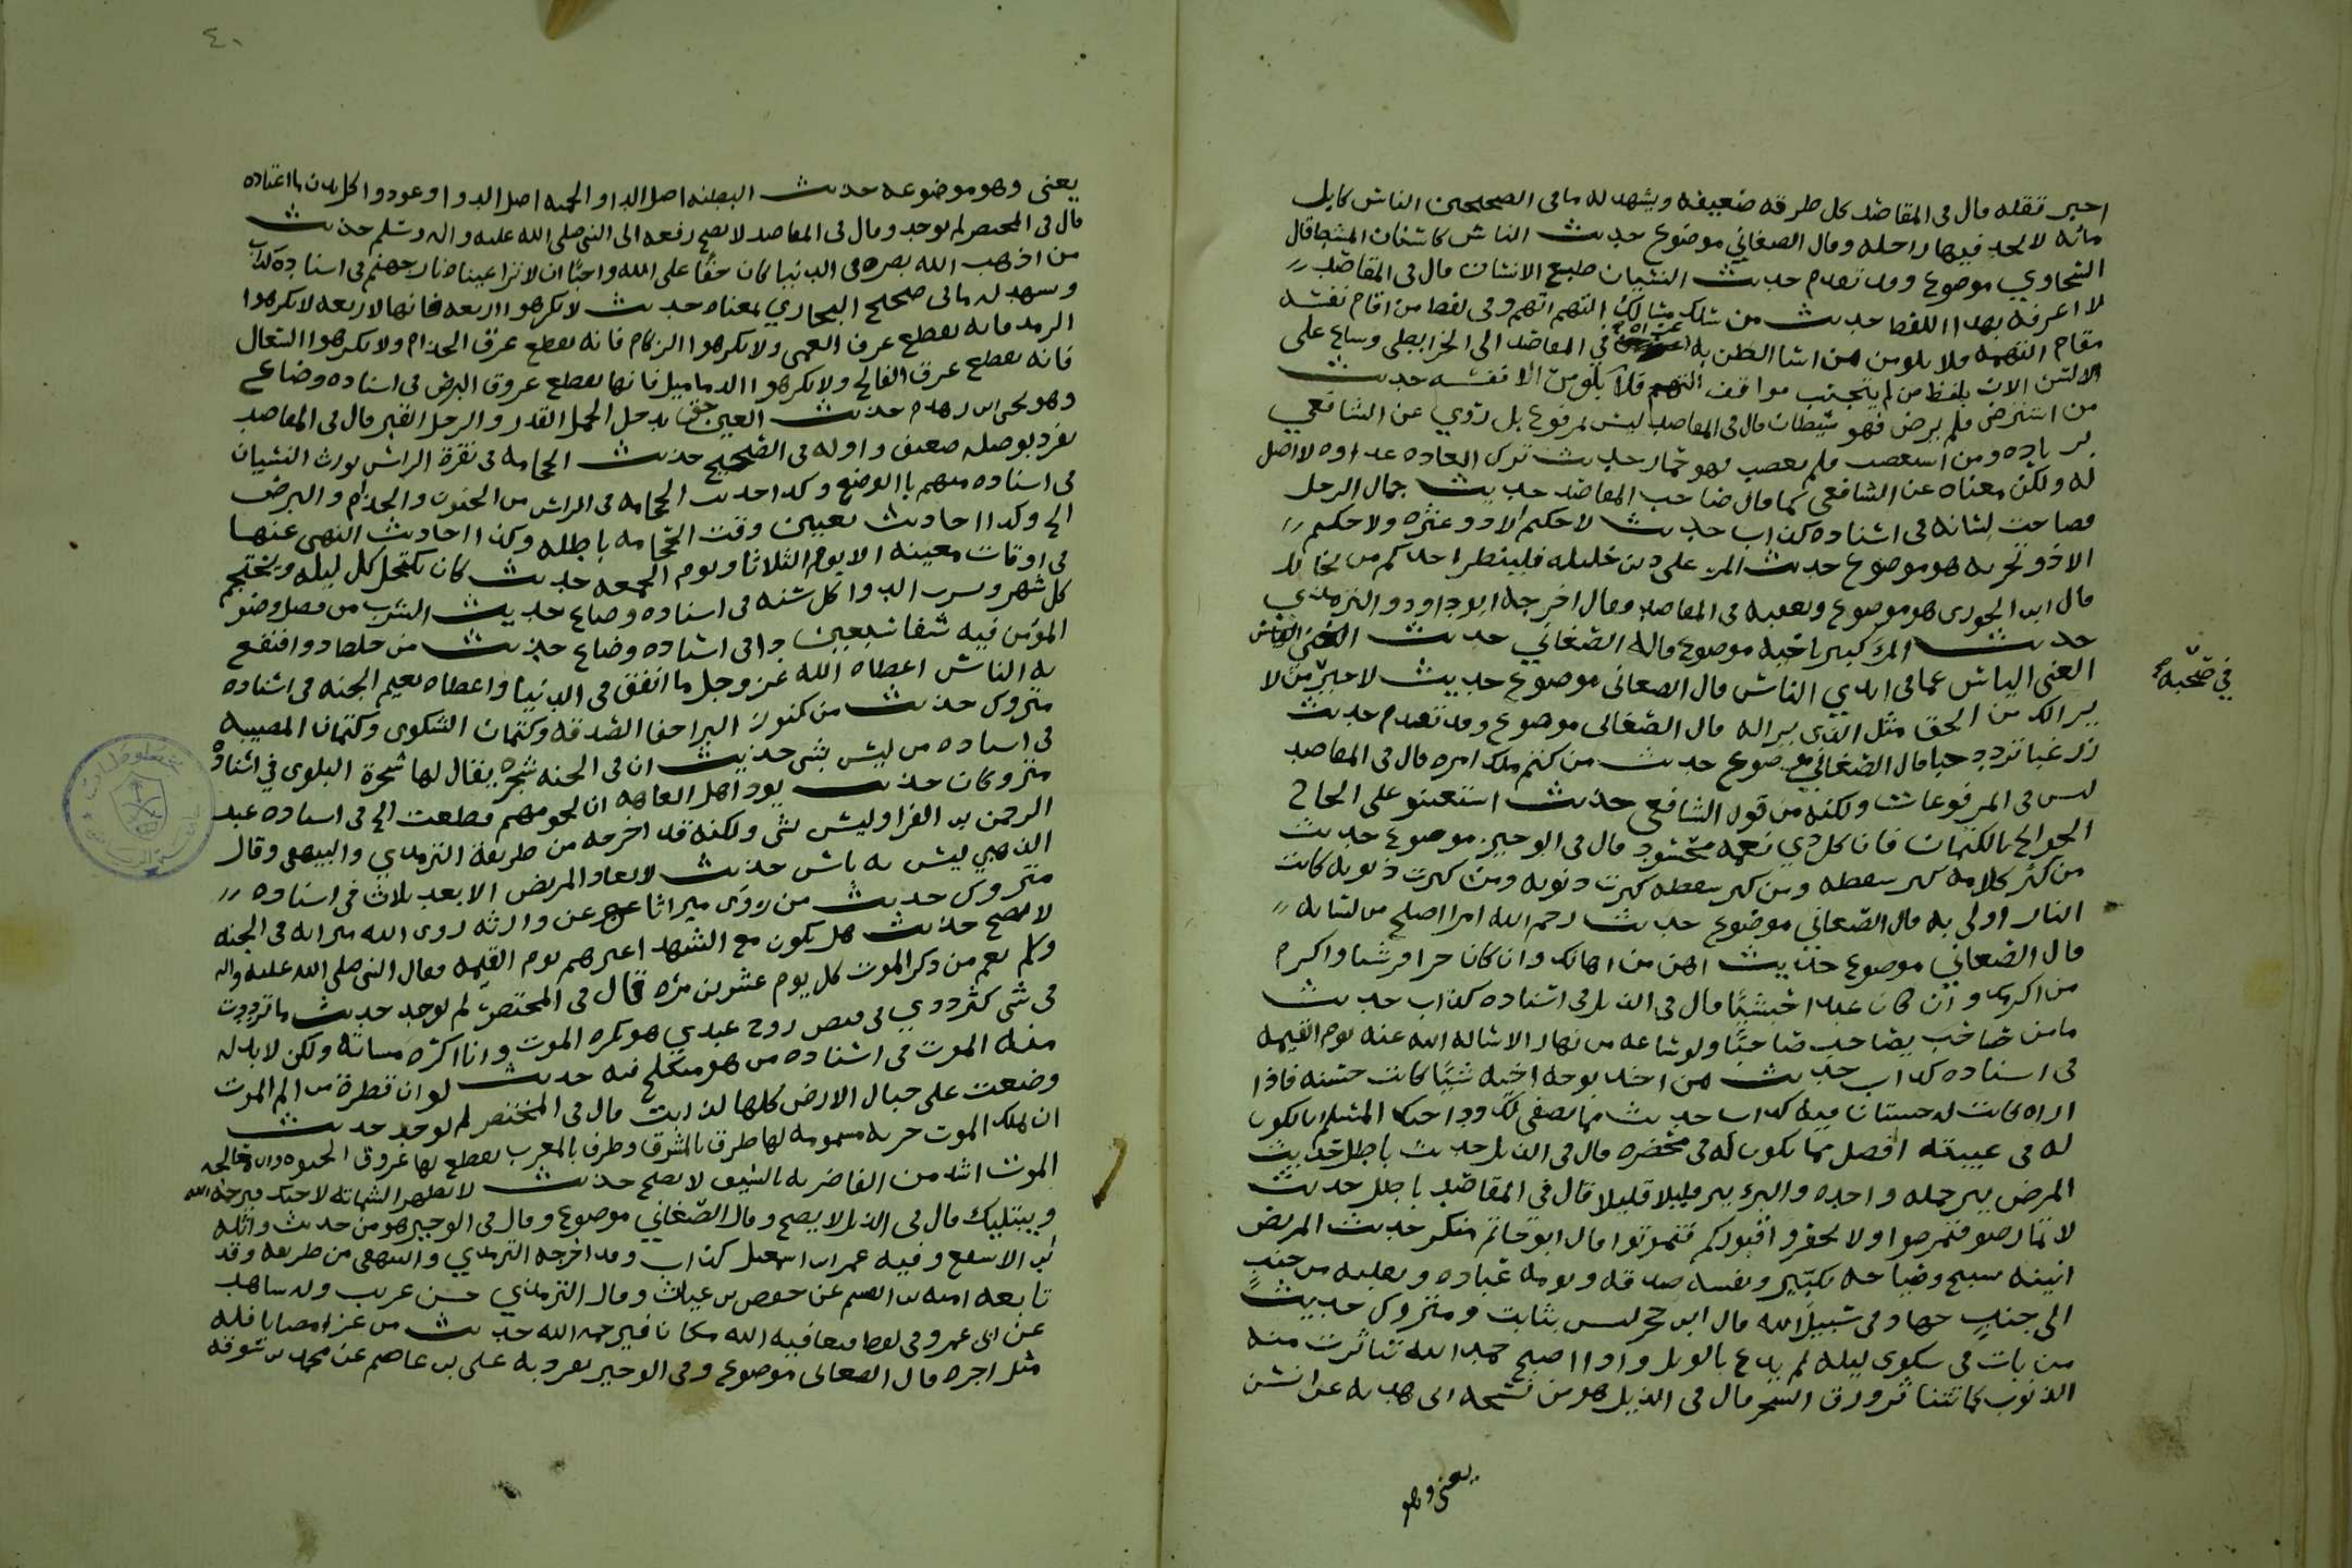 اخبر تقله قال فى المقاصد كل طرقه ضعيفه ويشهد له ما فى الصحيحين الناس كابل
مائه لا تجد فيها راحله وقال الصغاني موضوع حديث الناس كاسنان المشط قال
الشحاوي موضوع وقد تقدم حديث النسيان طبع الانسان قال فى المقاصد
لا اعرفه بهذا اللفظ حديث من سلك مسالك التهم اتهم وفى لفظ من اقام نفسه
مقام التهمه فلا يلومن من اسا الظن به فى المقاصد الى الخرايطى وساع على
الالسن الان بلفظ من لم يتجنب مواقف التهم فلا يلومن الا نفسه حديث
من استرضى فلم يرض فهو شيطان قال فى المقاصد ليس بمرفوع بل روي عن الشافعي
بزياده ومن استغضب فلم يغضب فهو حمار حديث ترك العاده عداوه لا اصل
له ولكن معناه عن الشافعى كما قال صاحب المقاصد حديث جمال الرجل
فصاحت لسانه فى اسناده كذاب حديث لا حكيم الا ذو عثره ولا حكيم
الا ذو تجربه هو موضوع حديث المرء على دين خليله فلينظر احدكم من يخالل
قال ابن الجوزى هو موضوع وتعقبه فى المقاصد وقال اخرجه ابو داود والترمذي
حديث المرء كبير باخيه موضوع قاله الصغاني حديث الغنى الياس
الغنى الياس عما فى ايدي الناس قال الصغانى موضوع حديث لا خير فى صحبة من لا
يرالك من الحق مثل الذي يراله قال الصغانى موضوع وقد تقدم حديث
زر غبا تزدد حبا قال الصغاني موضوع حديث من كتم ملك امره قال فى المقاصد
ليس فى المرفوعات ولكنه من قول الشافعى حديث استعينو على انجاح
الحوائج بالكتمان فان كل ذي نعمه محسود قال فى الوجيز موضوع حديث
من كثر كلامه كثر سقطه ومن كثر سقطه كثرت ذنوبه ومن كثرت ذنوبه كانت
النار اولى به قال الصغاني موضوع حديث رحم الله امرا اصلح من لسانه
قال الصغاني موضوع حديث اهن من اهانك وان كان حرا قرشيا واكرم
من اكرمك وان كان عبدا حبشيًا قال فى الذيل فى اسناده كذاب حديث
ما من صاحب يصاحب صاحبًا ولو ساعه من نهار الا سأله الله عنه يوم القيمه
فى اسناده كذاب حديث من اخذ بوجه اخيه شيئًا كانت حسنه فاذا
اراه كانت له حسنتان فيه كذاب حديث مما يصفى لك ود اخيك المسلم ان تكون
له فى غيبته افضل مما تكون له فى محضره قال فى الذيل حديث باطل حديث
المرض ينزل جمله واحده والبرء ينزل قليلا قليلا قال فى المقاصد باطل حديث
لا تمارضو فتمرضوا ولا تحفرو اقبوركم فتموتوا قال ابو حاتم منكر حديث المريض
انينه تسبيح وصياحه تكبير ونفسه صدقه ونومه عباده وتقلبه من جنب
الى جنب جهاد فى سبيل الله قال ابن حجر ليس بثابت ومتروك حديث
من بات فى شكوى ليله لم يدع بالويل واذا اصبح حمد الله تناثرت منه
الذنوب كما تتناثر ورق الشجر قال فى الذيل هو من نسخه ابى هدبه عن انس
يعنى وهو
فى صحبة
٤٠
يعنى وهو موضوعه حديث البطنه اصل الداء والحميه اصل الدوا وعودوا كل بدن ما اعتاده
قال فى المختصر لم يوجد وقال فى المقاصد لا يصح رفعه الى النبى صلى الله عليه واله وسلم حديث
من اذهب الله بصره فى الدنيا كان حقًا على الله واجبًا ان لا ترا عيناه نار جهنم فى اسناده كذاب
ويشهد له ما فى صحيح البخاري بمعناه حديث لا تكرهوا اربعه فانها لاربعه لا تكرهوا
الرمد فانه يقطع عرق العمى ولا تكرهوا الزكام فانه يقطع عرق الجذام ولا تكرهوا السعال
فانه يقطع عرق الفالج ولا تكرهوا الدماميل فانها تقطع عروق البرص فى اسناده وضاع
وهو يحيى ابن زهدم حديث العين حق تدخل الجمل القدر والرجل القبر قال فى المقاصد
تفرد بوصله ضعيف واوله فى الصحيح حديث الحجامه فى نقرة الراس تورث النسيان
فى اسناده متهم بالوضع وكذا حديث الحجامه فى الراس من الجنون والجذام والبرص
الخ وكذا احاديث تعيين وقت الحجامه باطله وكذا احاديث النهى عنها
فى اوقات معينه الا يوم الثلاثا ويوم الجمعه حديث كان يكتحل كل ليله ويحتجم
كل شهر ويشرب الدوا كل سنه فى اسناده وضاع حديث الشرب من فضل وضوء
المؤمن فيه شفا سبعين دا فى اسناده وضاع حديث من حلق قفاه وافنقع
به الناس اعطاه الله عز وجل ما انفق فى الدنيا واعطاه نعيم الجنه فى اسناده
متروك حديث من كنوز البر اخفا الصدقه وكتمان الشكوى وكتمان المصيبه
فى اسناده من ليس بشى حديث ان فى الجنه شجره يقال لها شجرة البلوى فى اسناده
متروكان حديث يود اهل العافيه ان لحومهم قطعت الخ فى اسناده عبد
الرحمن بن الفرا وليس بشى ولكنه قد اخرجه من طريقه الترمذي والبيهقى وقال
الذهبي ليس به باس حديث لا يعاد المريض الا بعد ثلاث فى اسناده
متروك حديث من زوى ميراثا عن وارثه زوى الله ميراثه فى الجنه
لا يصح حديث هل يكون مع الشهدا غيرهم يوم القيمه فقال النبى صلى الله عليه واله
وسلم نعم من ذكر الموت كل يوم عشرين مره قال فى المختصر لم يوجد حديث ما ترددت
فى شى كترددي فى قبض روح عبدي هو يكره الموت وانا اكره مساته ولكن لابد له
منه الموت فى اسناده من هو متكلم فيه حديث لو ان قطرة من الم الموت
وضعت على جبال الارض كلها لذابت قال فى المختصر لم يوجد حديث
ان لملك الموت حربه مسمومه لها طرف بالمشرق وطرف بالمغرب يقطع بها عروق الحيوه وان معالجه
الموت اشد من الف ضربه بالسيف لا يصح حديث لا تظهر الشماته لاخيك فيرحمه الله
ويبتليك قال فى الذيل لا يصح وقال الصغاني موضوع وقال فى الوجيز هو من حديث واثله
بن الاسقع وفيه عمر ابن اسمعيل كذاب وقد اخرجه الترمذي والبيهقى من طريقه وقد
تابعه اميه بن القسم عن حفص بن غياث وقال الترمذي حسن غريب وله شاهد
عن ابى عمر وفى لفظ فيعافيه الله مكان فيرحمه الله حديث من عزا مصابا فله
مثل اجره قال الصغانى موضوع وفى الوجيز تفرد به على بن عاصم عن محمد بن سوقه